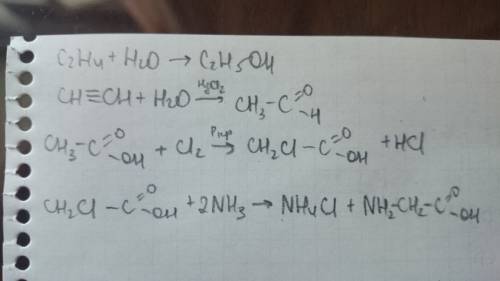 C2H4 + H2O → C2H5OH
CH≡CH + H2O →(HgCl2) CH3-C(=O)-H
CH3-C(=O)-OH + Cl2 →(Pкр) CH2Cl-C(=O)-OH + HCl
CH2Cl-C(=O)-OH + 2NH3 → NH4Cl + NH2-CH2-C(=O)-OH